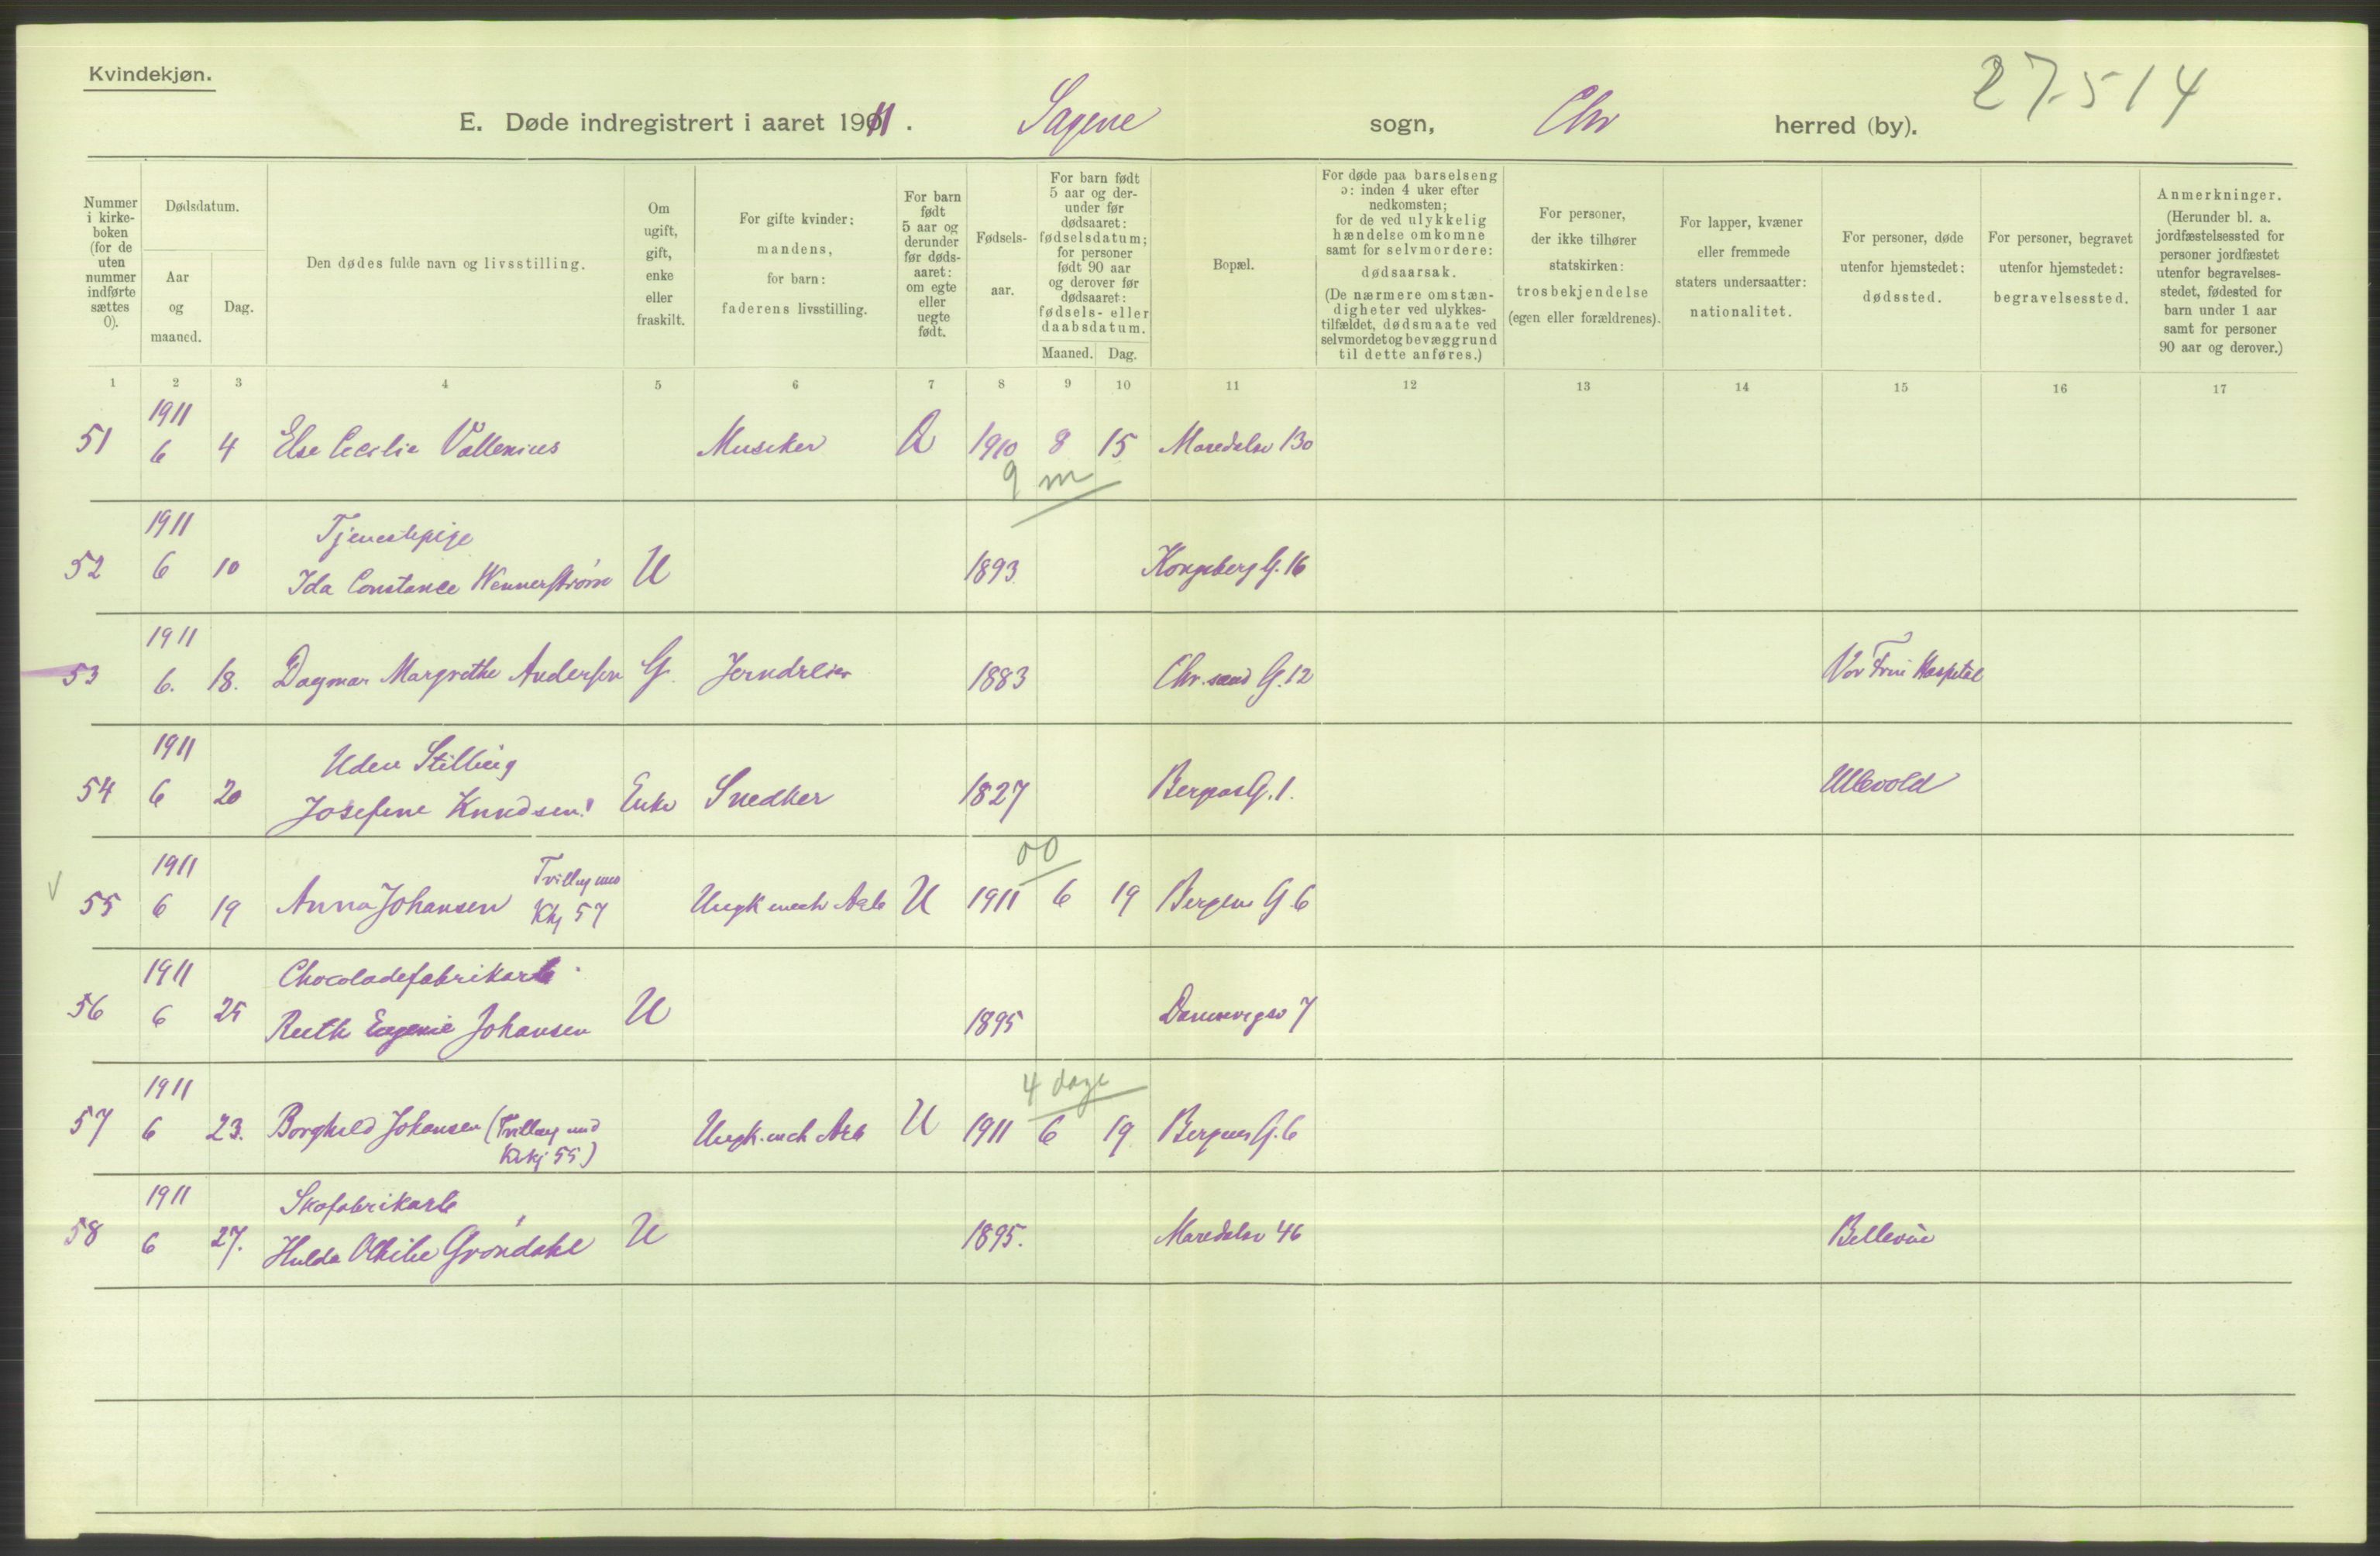 Kvindekjøn.
27.514
E. Døde indregistrert i aaret 1911. Sagene sogn, Chr herred (by).
Nummer i kirkeboken (for de uten nummer indførte sættes 0).
Dødsdatum.
Aar og maaned.
Dag.
Den dødes fulde navn og livsstilling.
Om ugift, gift, enke eller fraskilt.
For gifte kvinder: mandens, for barn: faderens livsstilling.
For barn født 5 aar og derunder før dødsaaret: om egte eller uegte født.
Fødselsaar.
For barn født 5 aar og derunder før dødsaaret: fødselsdatum; for personer født 90 aar og derover før dødsaaret: fødsels- eller daabsdatum.
Maaned. Dag.
Bopæl.
For døde paa barselseng ɔ: inden 4 uker efter nedkomsten; for de ved ulykkelig hændelse omkomne samt for selvmordere: dødsaarsak. (De nærmere omstændigheter ved ulykkestilfældet, dødsmaate ved selvmordet og bevæggrund til dette anføres.)
For personer, der ikke tilhører statskirken: trosbekjendelse (egen eller forældrenes).
For lapper, kvæner eller fremmede staters undersaatter: nationalitet.
For personer, døde utenfor hjemstedet: dødssted.
For personer, begravet utenfor hjemstedet: begravelsessted.
Anmerkninger. (Herunder bl. a. jordfæstelsessted for personer jordfæstet utenfor begravelsesstedet, fødested for barn under 1 aar samt for personer 90 aar og derover.)
1 2 3 4 5 6 7 8 9 10 11 12 13 14 15 16 17
1911
51 6 4 Else Cecilie Vallenius Musiker 1910 8 15 Maredalsv 130
9 m
1911 Tjenestepige
52 6 10 Ida Constance Wennerstrøm U 1893 Kongsberg G. 16
1911
53 6. 18. Dagmar Margrethe Andersen G. Jerndreier 1883 Chr.sand G. 12 Vor Frue Hospital
1911 Uden Stilling
54 6 20 Josefine Knudsen Enke Snedker 1827 Bergens G. 1. Ullevold
1911 Tvilling med 00
55 6 19 Anna Johansen Kkj 57 Ungk mech Arb U 1911 6 19 Bergens G 6
1911 Chocoladefabrikarb
56 6 25 Ruth Eugenie Johansen U 1895 Dannevigsv 7
1911 4 dage
57 6 23. Borghild Johansen (Tvilling med Ungk. mech Arb U 1911 6 19 Bergens G. 6
Kkj 55)
1911 Skofabrikarb
58 6 27. Hulda Othilie Grøndahl U 1895. Maredalsv 46 Bellevue